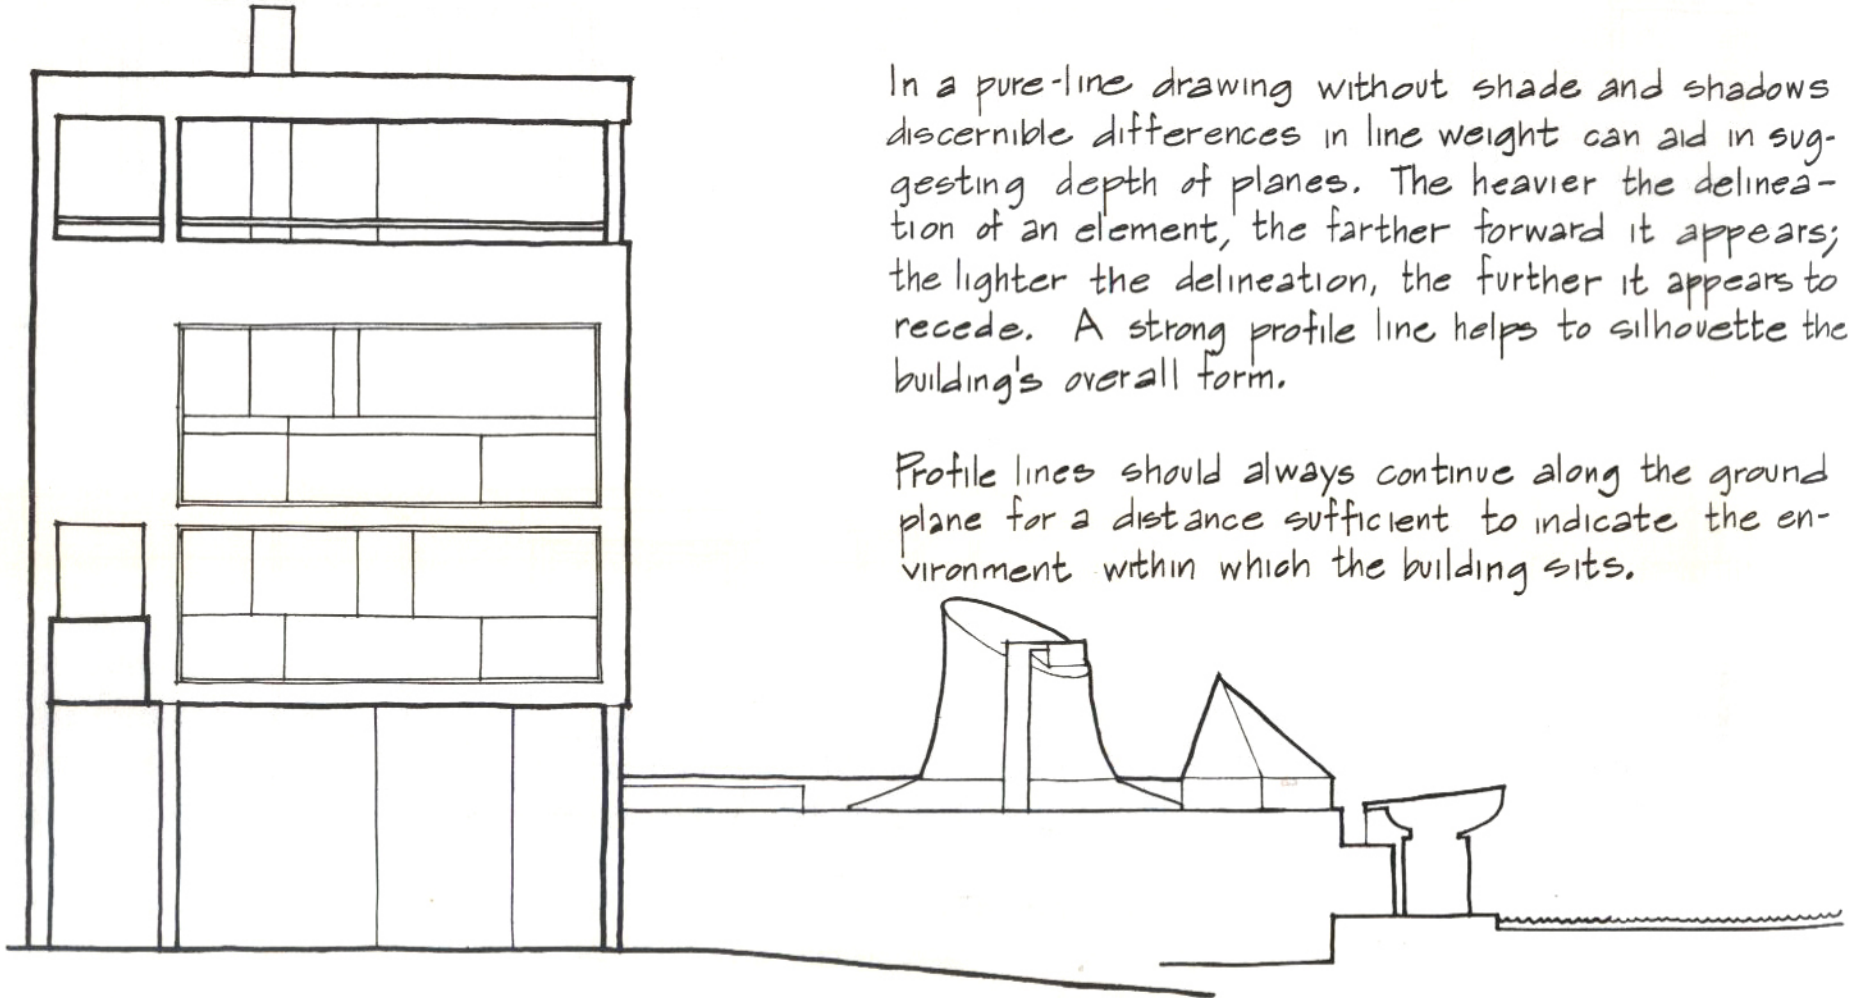 In a pure-line drawing without shade and shadows
discernible differences in line weight can aid in sug-
gesting depth of planes. The heavier the delinea-
tion of an element, the farther forward it appears;
the lighter the delineation, the further it appears to
recede. A strong profile line helps to silhouette the
building's overall form.
Profile lines should always continue along the ground
plane for a distance sufficient to indicate the en-
vironment within which the building sits.